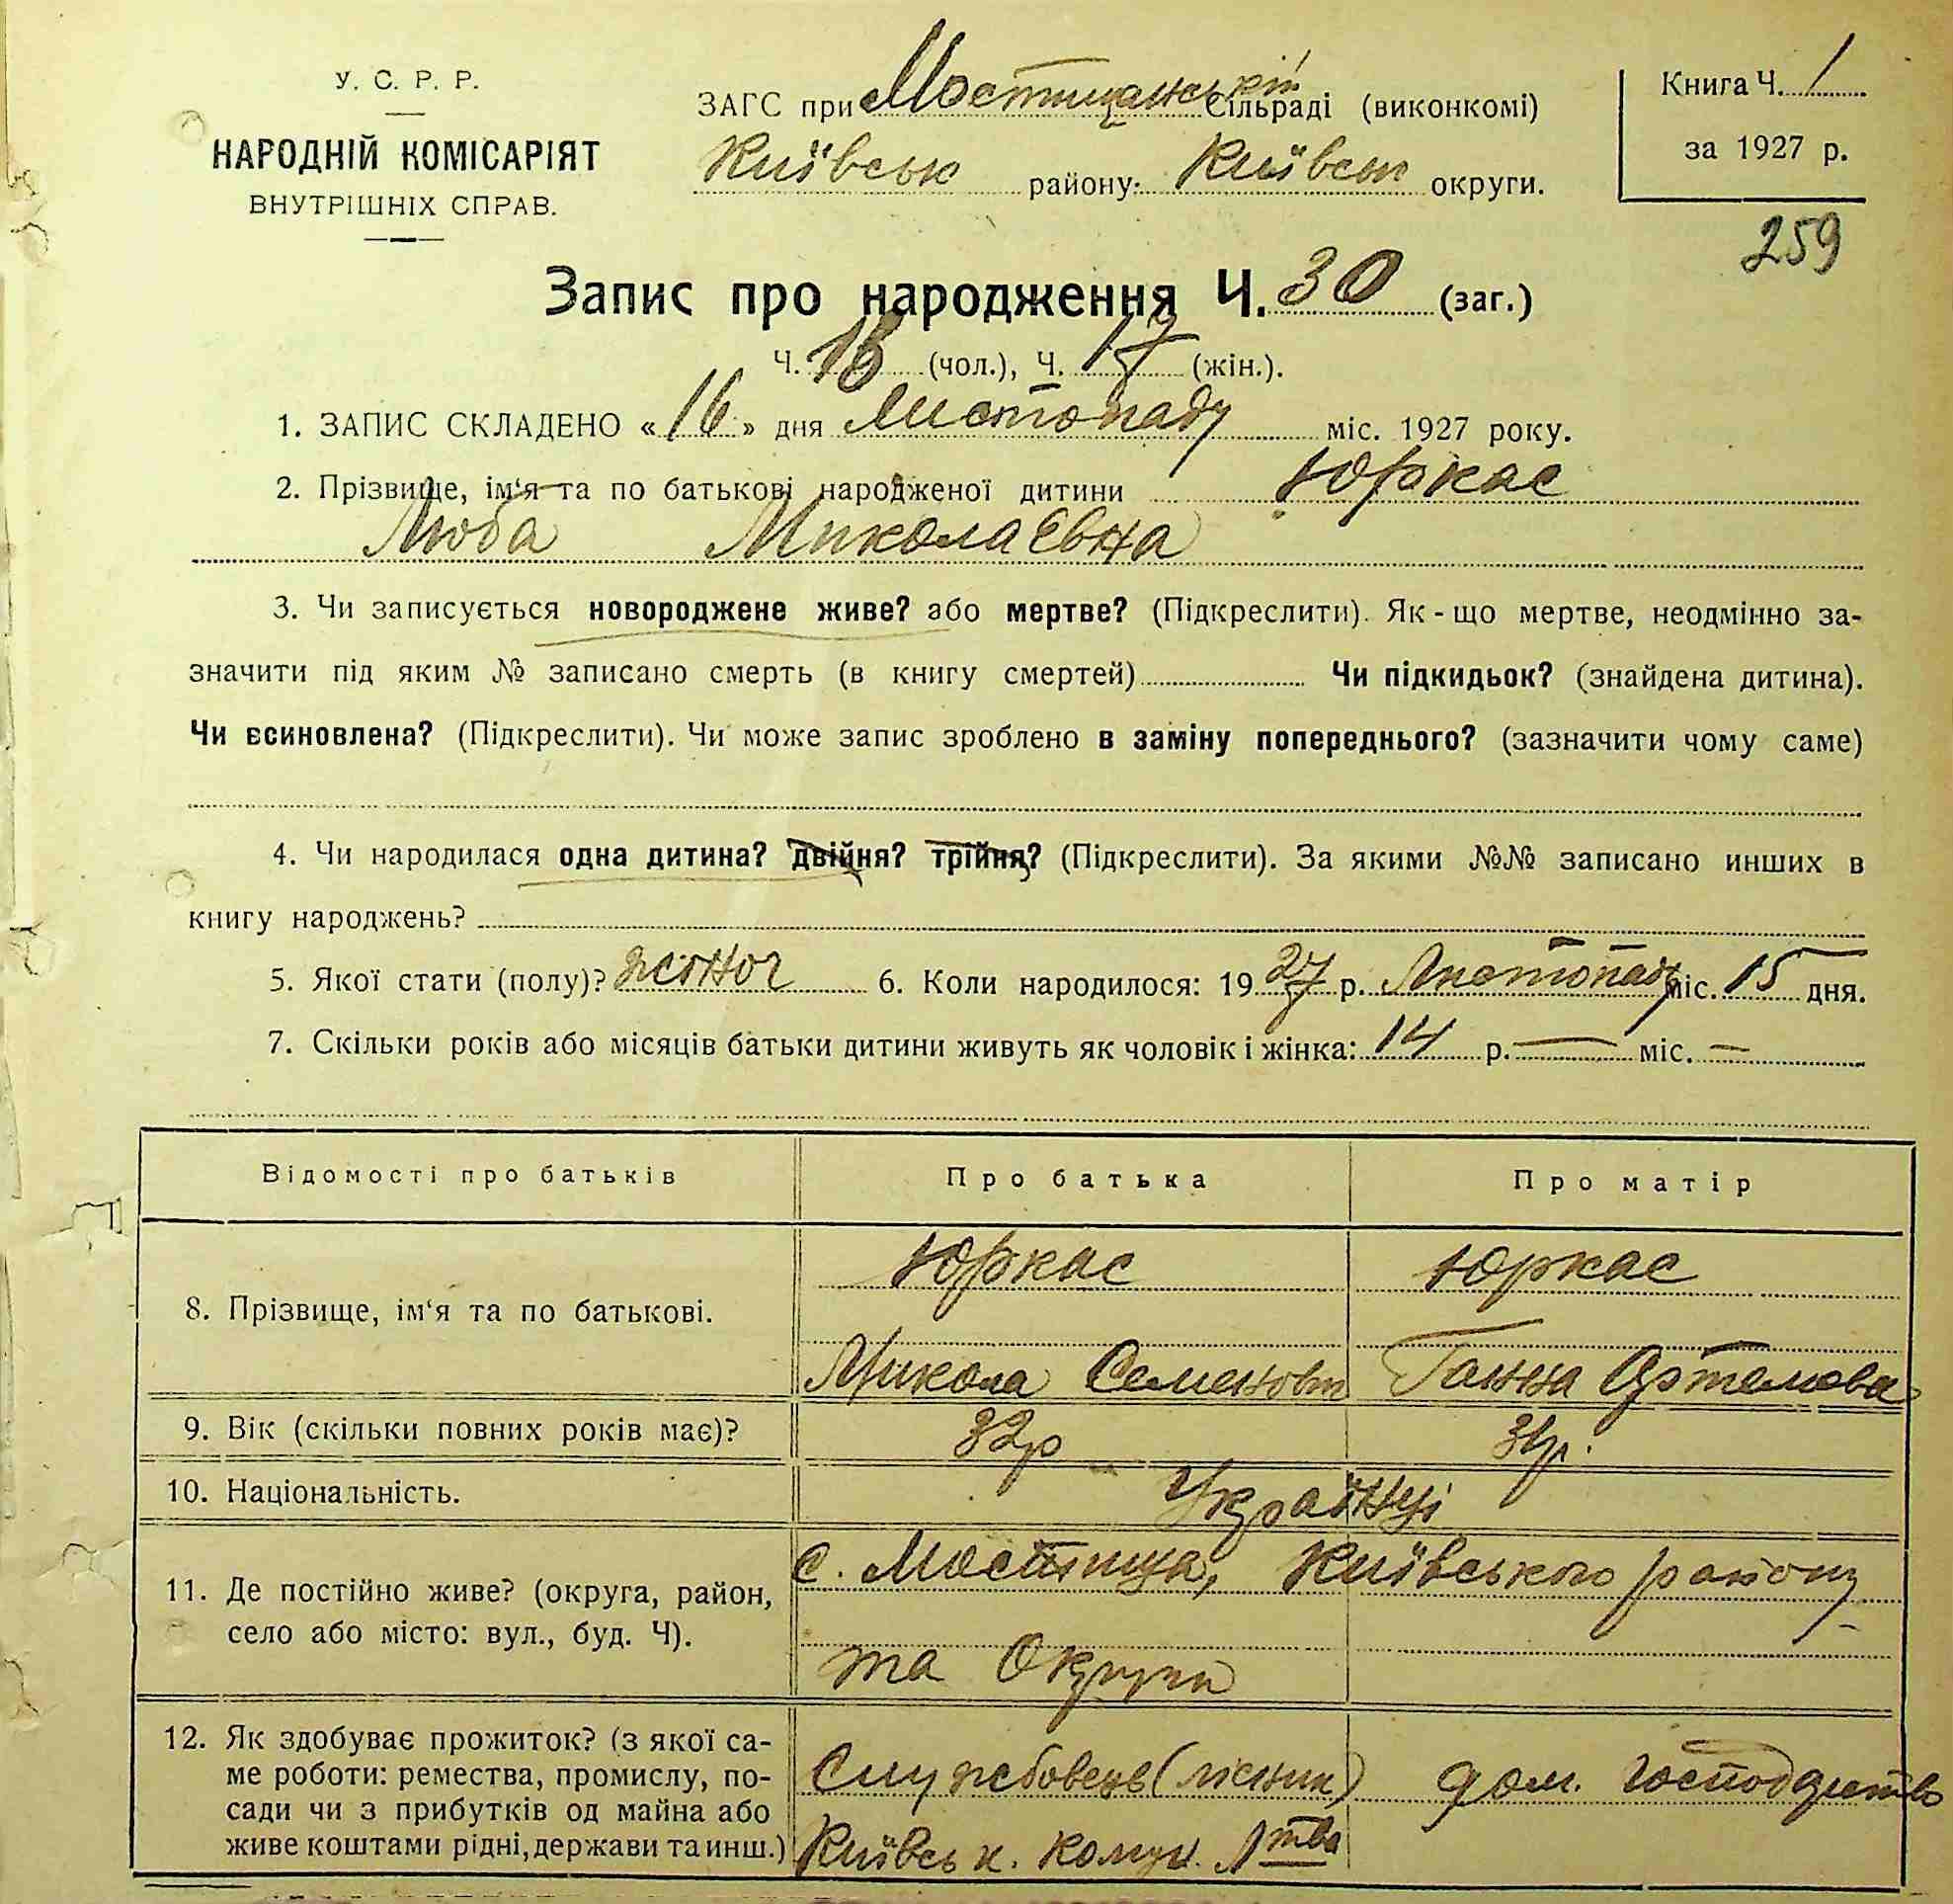 У. С. Р. Р.
НАРОДНІЙ КОМІСАРІЯТ
ВНУТРІШНІХ СПРАВ.
ЗАГС при Мостищанській Сільраді (виконкомі)
Київськ району Київськ округи.
Книга Ч. 1
за 1927 р.
259
Запис про народження Ч. 30 (заг.)
Ч. 13 (чол.), Ч. 17 (жін.).
1. ЗАПИС СКЛАДЕНО «16» дня Листопаду міс. 1927 року.
2. Прізвище, ім‘я та по батькові народженої дитини Юркас
Люба Миколаєвна
3. Чи записується новороджене живе? або мертве? (Підкреслити). Як-що мертве, неодмінно за-
значити під яким № записано смерть (в книгу смертей) Чи підкидьок? (знайдена дитина).
Чи всиновлена? (Підкреслити). Чи може запис зроблено в заміну попереднього? (зазначити чому саме)
4. Чи народилася одна дитина? двійня? трійня? (Підкреслити). За якими №№ записано инших в
книгу народжень?
5. Якої стати (полу)? жіноч 6. Коли народилося: 1927 р. Листопаду міс. 15 дня.
7. Скільки років або місяців батьки дитини живуть як чоловік і жінка: 14 р. — міс. —
Відомості про батьків Про батька Про матір
Юркас Юркас
8. Прізвище, ім‘я та по батькові.
Микола Семенович Ганна Артемова
9. Вік (скільки повних років має)? 32р р.
10. Національність. Українці
с. Мостище, Київського району
11. Де постійно живе? (округа, район,
село або місто: вул., буд. Ч).
та Округи
12. Як здобуває прожиток? (з якої са-
ме роботи: ремества, промислу, по-
сади чи з прибутків од майна або
живе коштами рідні, держави та инш.)
Службовець (лісник) дом. господарство
Київськ. Комун. Л-тва